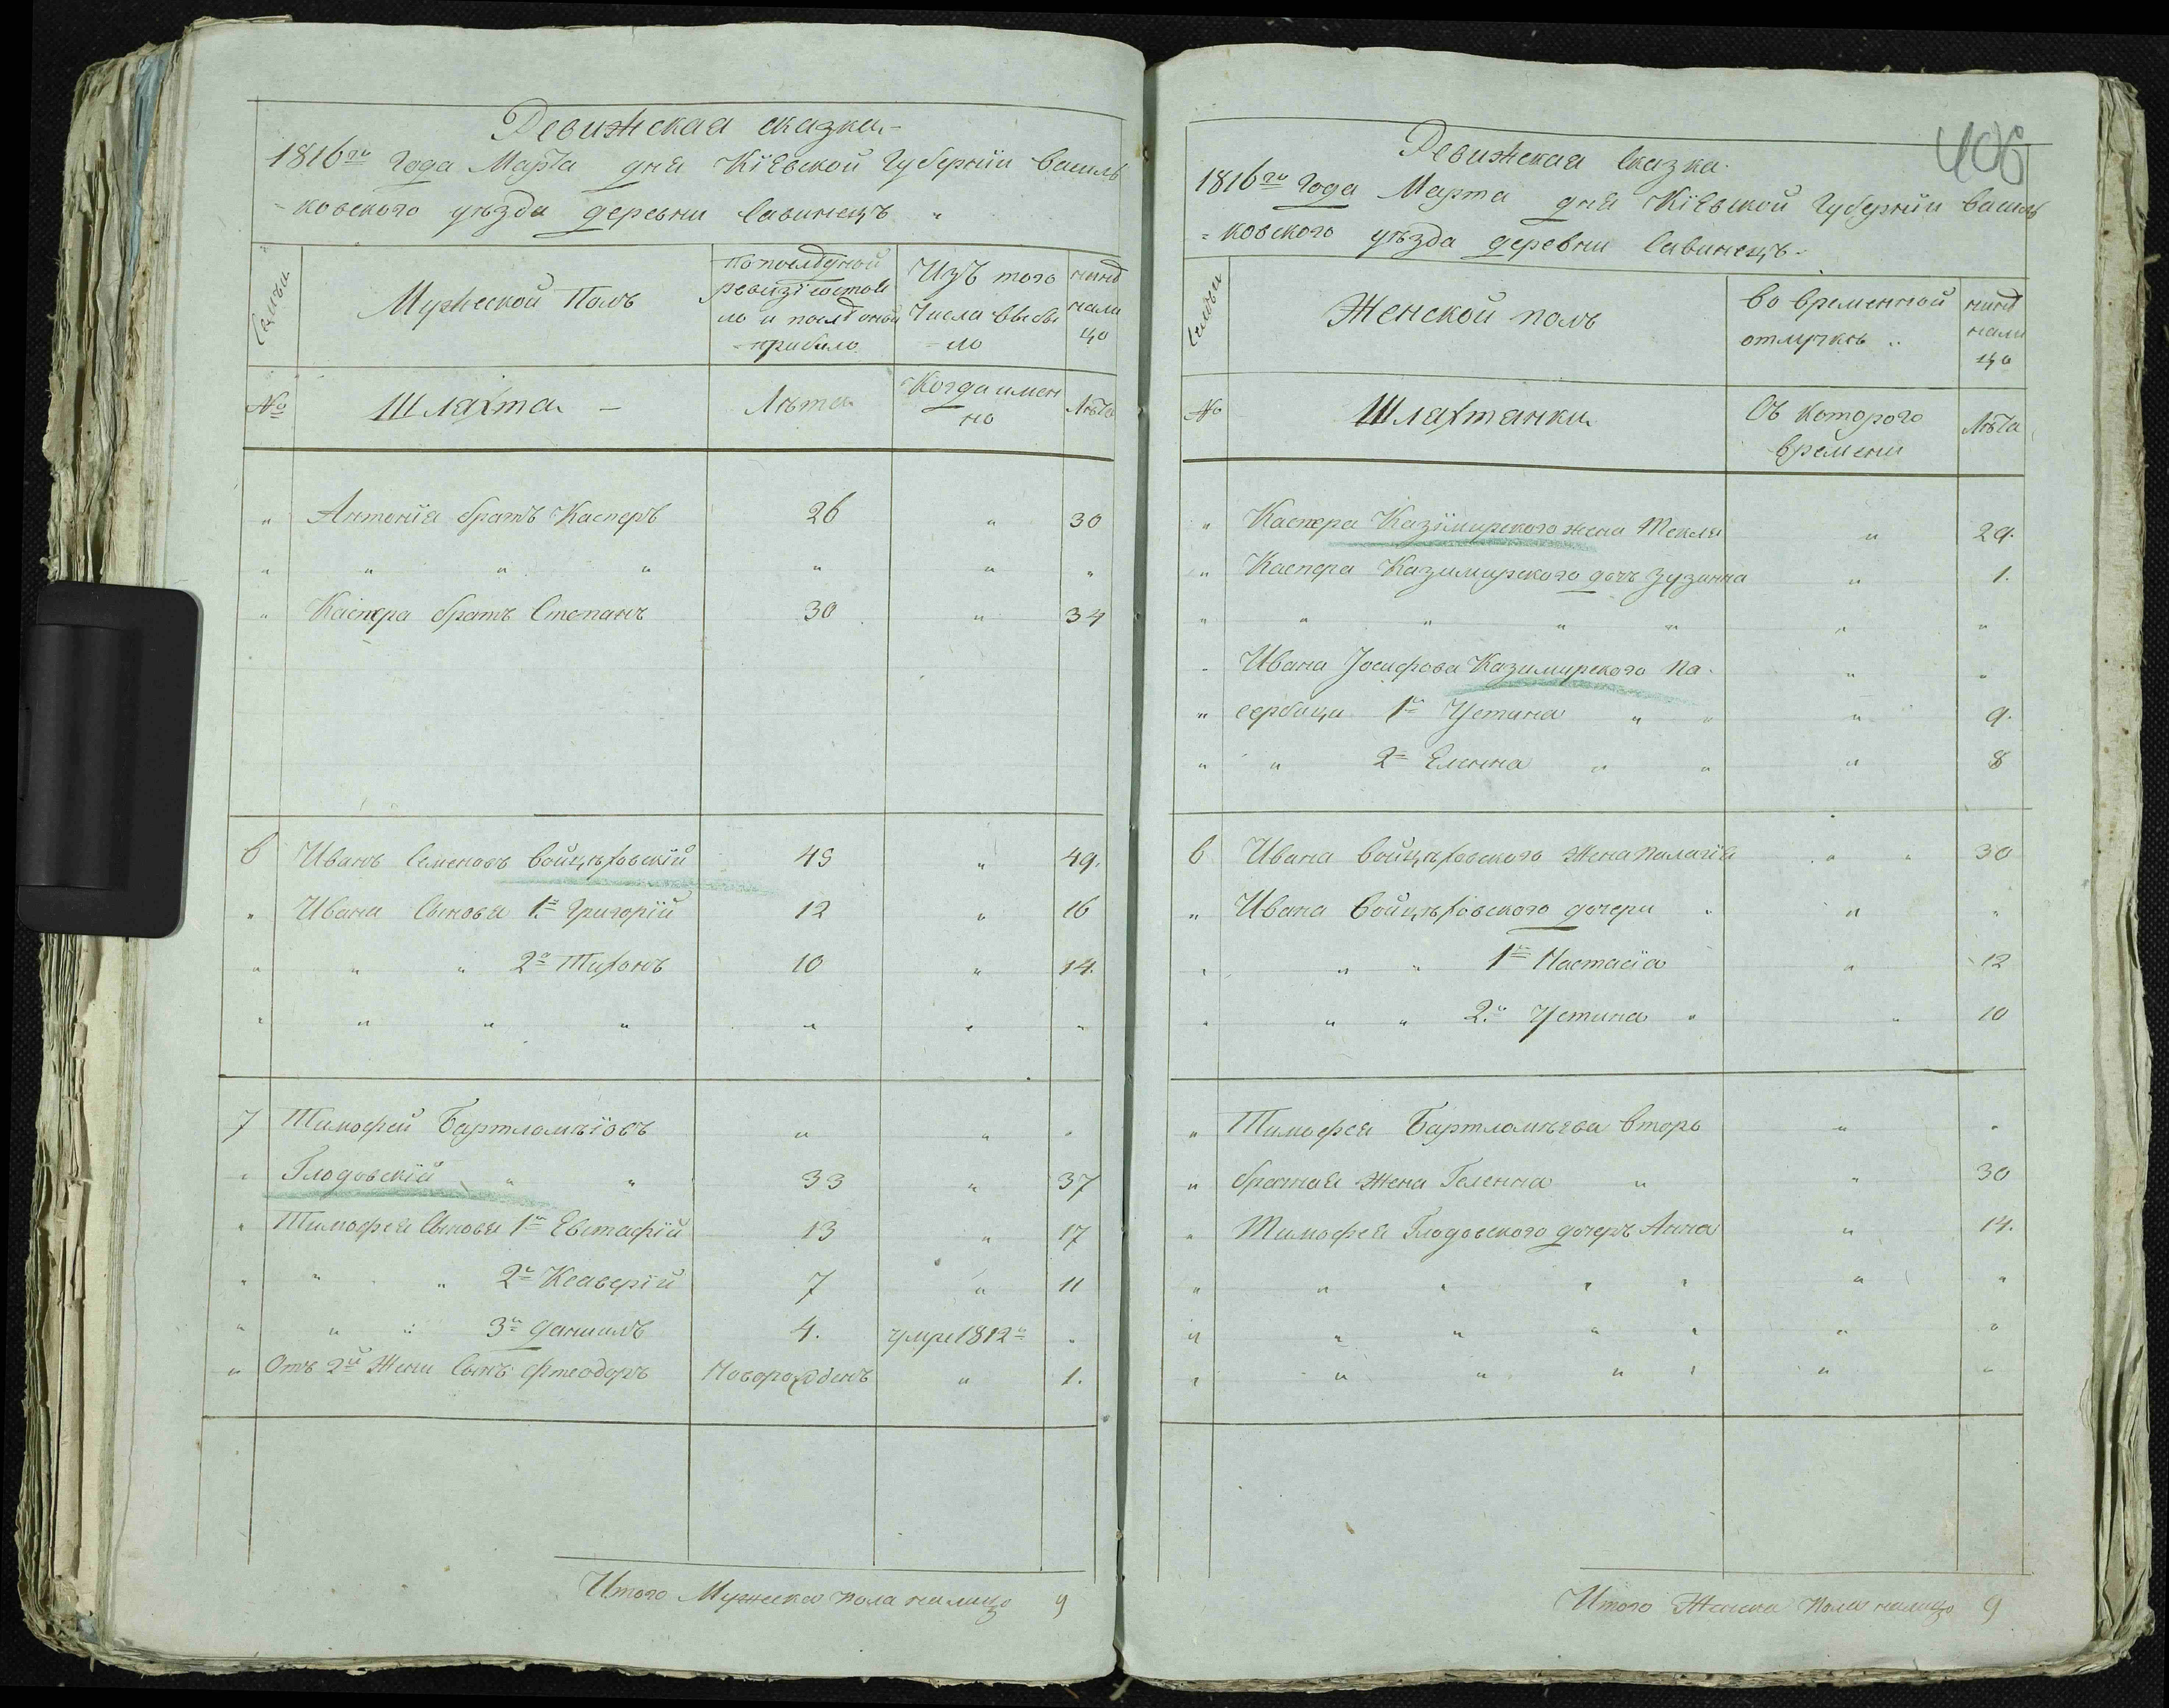 Ревижская сказка
1816го Года Марта дня Кіевской Губерніи Василь
ковского уѣзда деревни Савинецъ
Семьи
Мужеской Полъ
По последней
ревизіи состоя
ло и после оной
прибыло
Изъ того
Числа выбы
ло
ныне
нали
цо
№
Шляхта
Лѣта
Когда имен
но
Лѣта
" Антонія братъ Касперъ 26 " 30
" " " " " " "
" Каспра братъ Степанъ 30 " 34
6 Иванъ Семеновъ Войцѣховскій 45 " 49.
" Ивана Сыновья 1й Григорій 12 " 16
" " " 2й Тихонъ 10 " 14.
" " " " " " "
7 Тимофей Бартломѣіовъ " " "
" Глодовскій " " 33 " 37
" Тимофея Сыновья 1й Евстафій 13 " 17
" " " 2й Ксаверій 7 " 11
" " " 3й Даниилъ 4. умре 1812го "
" Отъ 2й Жены Сынъ Фтеодоръ Новорожденъ " 1.
Итого Мужеска пола налицо 9
406
Ревижская Сказка
1816го Года Марта дня Кіевской Губерніи Василь
ковского уѣзда деревни Савинецъ
Семьи
Женской полъ
Во временной
отлучкѣ
ныне
нали
цо
№
Шляхтанки
Съ которого
времени
Лѣта
" Каспра Казимирского жена Текля " 29.
" Каспера Казимирского дочь Зузанна " 1.
" " " " " " "
" Ивана Іосифова Казимирского па " "
" сербицы 1я Устина " " " 9.
" " 2я Еленна " " " 8
6 Ивана Войцѣховского Жена Палагія " " 30
" Ивана Войцѣховского дочери " " "
" " " 1я Настасія " 12
" " " 2я Устина " " 10
" Тимофея Бартломѣева Второ " "
" брачная Жена Геленна " " 30
" Тимофея Глодовского дочерь Анна " 14.
" " " " " " "
" " " " " " "
" " " " " " "
Итого Женска Пола налицо 9